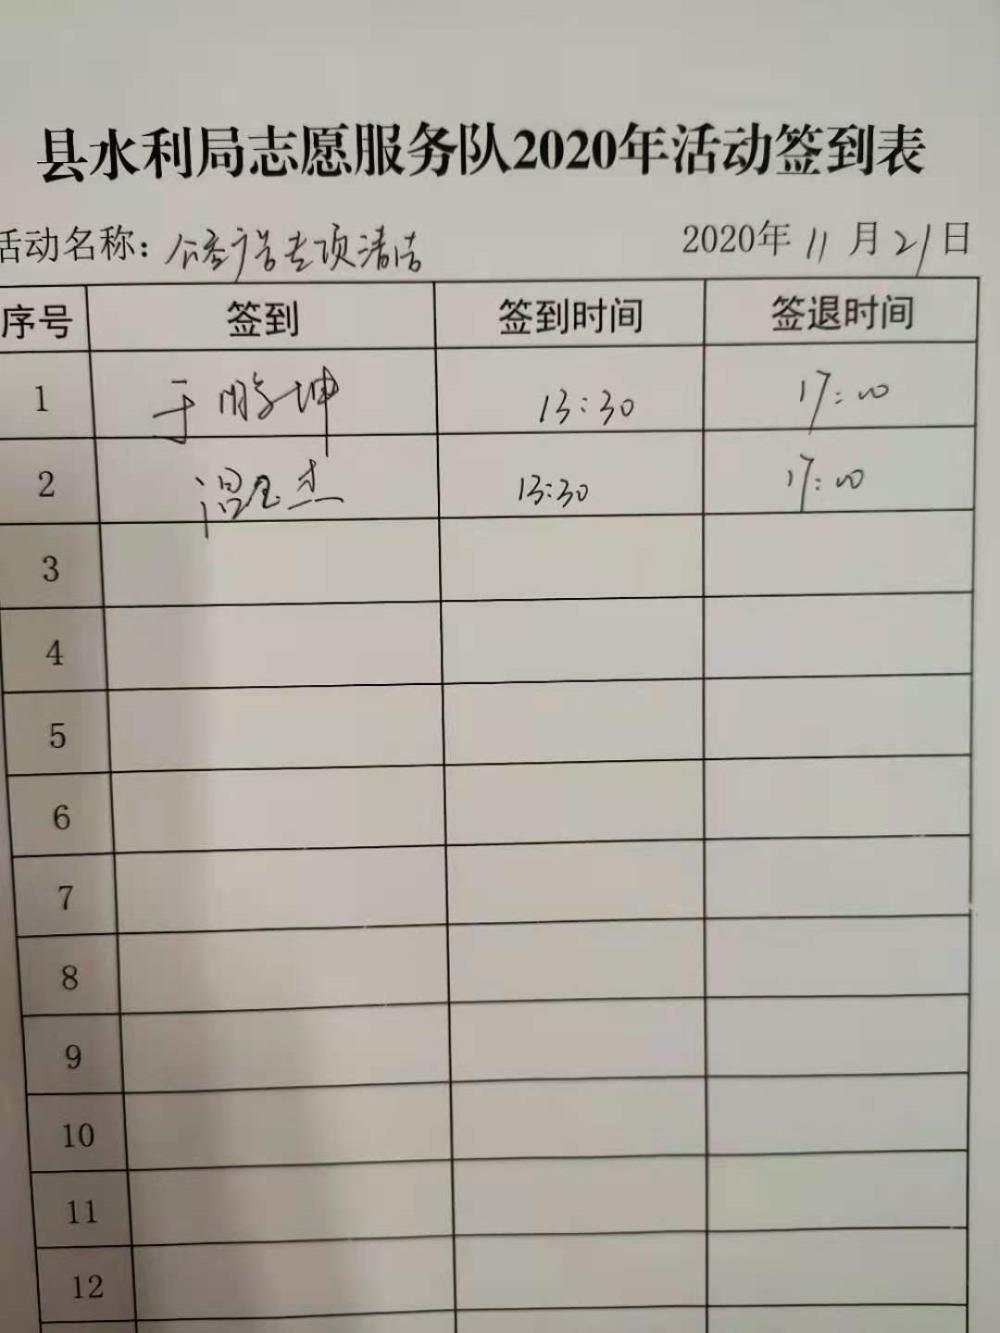 县水利局志愿服务队2020年活动签到表
活动名称：公益广告专项清洁 2020年11月21日
序号 签到 签到时间 签退时间
1 于鹏坤 13:30 17:00
2 温玉杰 13:30 17:00
3
4
5
6
7
8
9
10
11
12